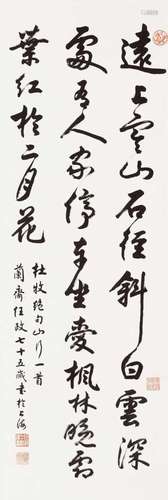 遠上寒山石徑斜白雲深
處有人家停車坐愛楓林晚霜
葉紅於二月花
杜牧絕句山行一首
蘭齋任政七十五歲書於上海